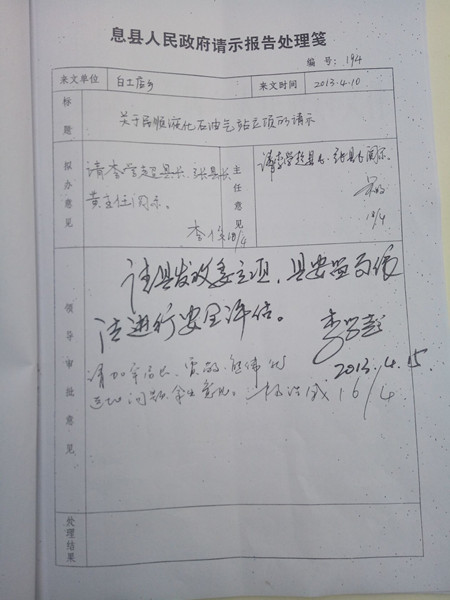 息县人民政府请示报告处理笺
编 号: 194
来文单位 白土店乡 来文时间 2013.4.10
标题 关于民顺液化石油气站立项的请示
拟办意见 请李学超县长、张县长
黄主任阅示。
李 18/4
主任意见 请李学超县长、张县长阅示。
18/4
领导审批意见
请县发改委立项,县安监局依
法进行安全评估。
李学超
2013.4.15
请 局长、 伟 
问题 意见。 16/4
处理结果